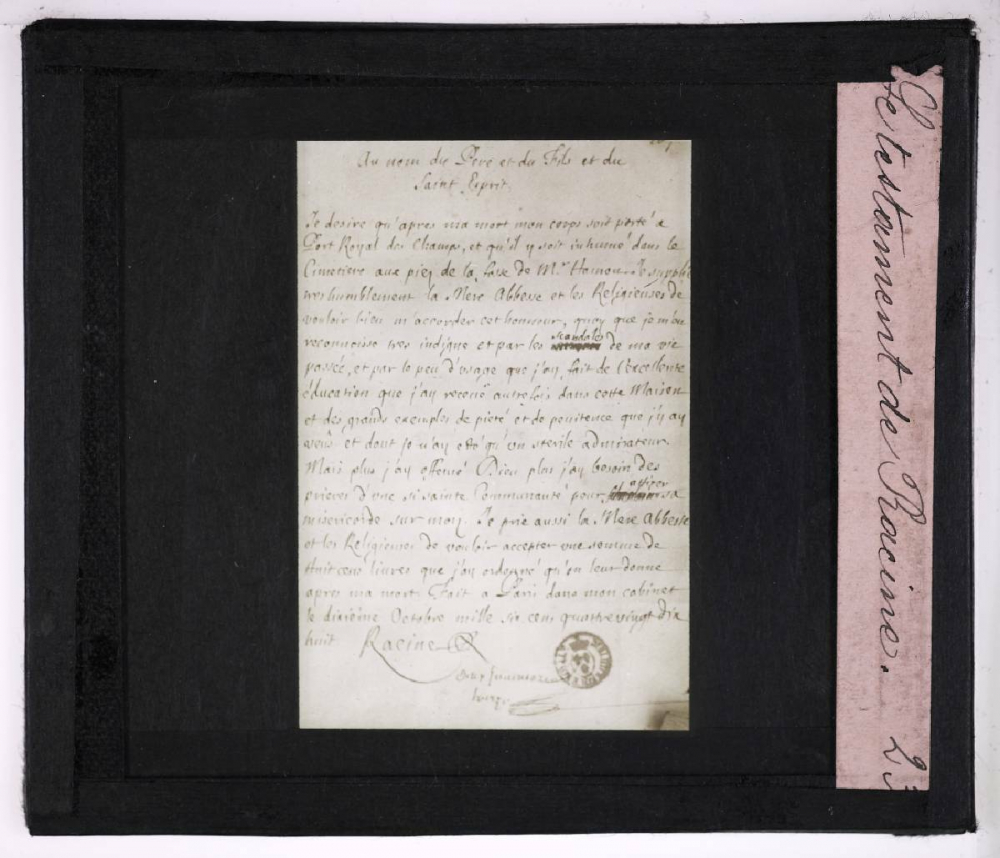 Au nom du Pere et du Fils et du
Saint Esprit.
Je desire qu'apres ma mort mon corps soit porté a
Port Royal des Champs, et qu'il y soit inhumé dans le
Cimetiere aux piez de la fosse de Mr Hamon. Je supplie
tres humblement la Mere Abbesse et les Religieuses de
vouloir bien m'accorder cet honneur, quoy que je m'en
reconnoisse tres indigne et par les scandales de ma vie
passée, et par le peu d'usage que j'ay fait de l'excellente
éducation que j'ay receuë autrefois dans cette Maison
et des grands exemples de pieté et de penitence que j'y ay
veus et dont je n'ay esté qu'un sterile admirateur.
Mais plus j'ay offensé Dieu plus j'ay besoin des
prieres d'une si sainte Communauté pour attirer sa
misericorde sur moy. Je prie aussi la Mere Abbesse
et les Religieuses de vouloir accepter une somme de
huit cens livres que j'ay ordonné qu'on leur donne
apres ma mort. Fait a Paris dans mon cabinet
le dixiéme Octobre mille six cens quatre vingt dix
huit.
Racine
Le testament de Racine. 23